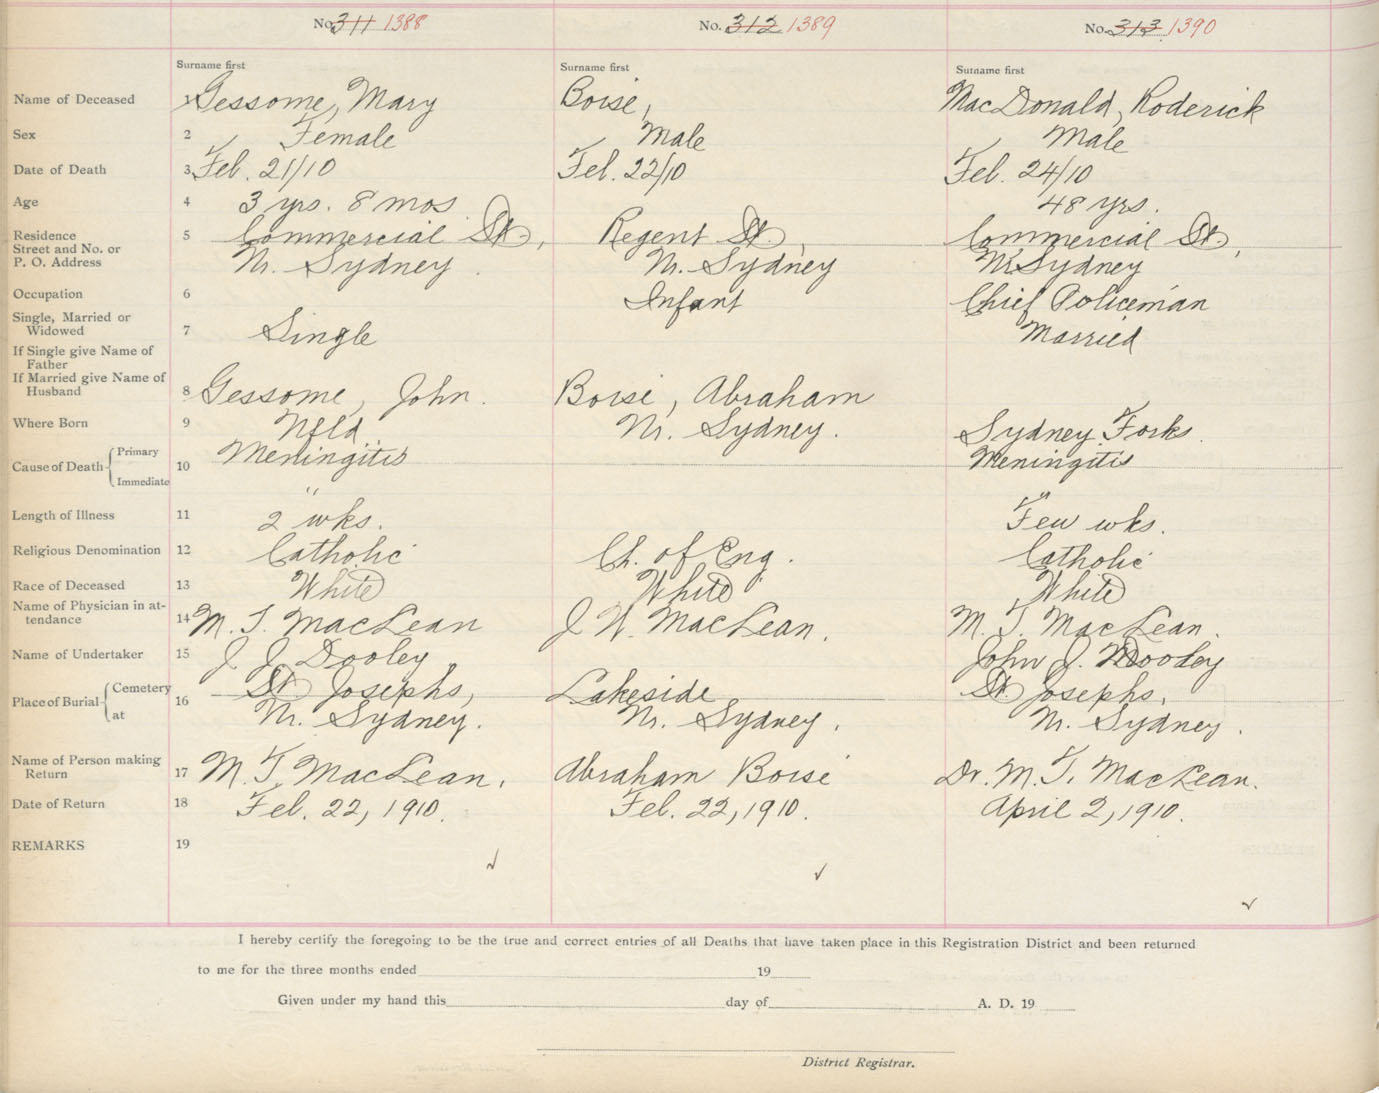 No. 311 1388 No. 312 1389 No. 313 1390
Surname first Surname first Surname first
Name of Deceased 1 Gessome, Mary Boise, MacDonald, Roderick
Sex 2 Female Male Male
Date of Death 3 Feb. 21/10 Feb. 22/10 Feb. 24/10
Age 4 3 yrs. 8 mos 48 yrs.
Residence 5 Commercial St., Regent St., Commercial St.,
Street and No. or
P. O. Address N. Sydney. N. Sydney N. Sydney
Occupation 6 Infant Chief Policeman
Single, Married or
Widowed 7 Single Married
If Single give Name of
Father
If Married give Name of
Husband 8 Gessome, John. Boise, Abraham
Where Born 9 Nfld N. Sydney. Sydney Forks.
Cause of Death Primary 10 Meningitis Meningitis
Immediate " "
Length of Illness 11 2 wks. Few wks.
Religious Denomination 12 Catholic Ch. of Eng. Catholic
Race of Deceased 13 White White White
Name of Physician in at-
tendance 14 M. T. MacLean J W. MacLean. M. T. MacLean.
Name of Undertaker 15 J J Dooley John J. Dooley
Place of Burial Cemetery 16 St Josephs, Lakeside St Josephs,
at N. Sydney. N. Sydney. N. Sydney.
Name of Person making
Return 17 M. T MacLean. Abraham Boise Dr. M. T. MacLean.
Date of Return 18 Feb. 22, 1910. Feb. 22, 1910. April 2, 1910.
REMARKS 19
✓ ✓ ✓
I hereby certify the foregoing to be the true and correct entries of all Deaths that have taken place in this Registration District and been returned
to me for the three months ended 19
Given under my hand this day of A. D. 19
District Registrar.